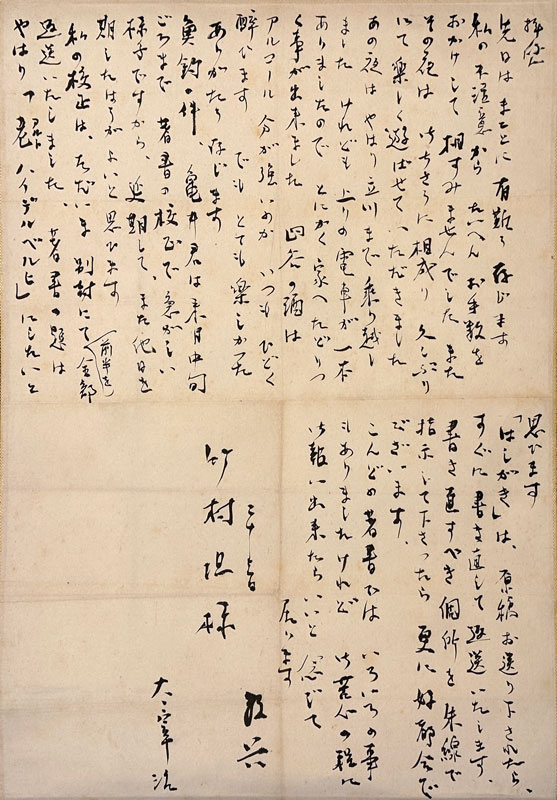 拝啓
先日は まことに 有難く 存じます
私の不注意から たいへん お手数を
おかけして 相すみませんでした また
その夜は 御ちそうに相成り 久しぶり
にて 楽しく 遊ばせて いただきました
あの夜は やはり 立川まで 乗り越し
ました けれども 上りの電車が 一本
ありましたので とにかく 家へたどりつ
く事が出来ました 四谷の酒は
アルコール分が強いのか いつも ひどく
酔ひます でも とても 楽しかった
ありがたく 存じます
魚釣の件 亀井君は 来月中旬
ごろまで 著書の校正で 急がしい
様子ですから、延期して、また他日を
期したはうが よいと 思ひます
私の校正は、ただいま 別封にて（前半を）全部
返送いたしました、著書の題は
やはり「老ハイデルベルヒ」にしたいと
アルト
思ひます
「はしがき」は、原稿お送り下されたら、
すぐに書き直して返送いたします、
書き直すべき個所を 朱線で
指示して下さったら 更に 好都合で
ございます、
こんどの著書では いろいろの事
もありましたけれど 御苦心の程に
御報い出来たら いいと 念じて
居ります
三十日 敬具
竹村坦様
太宰治